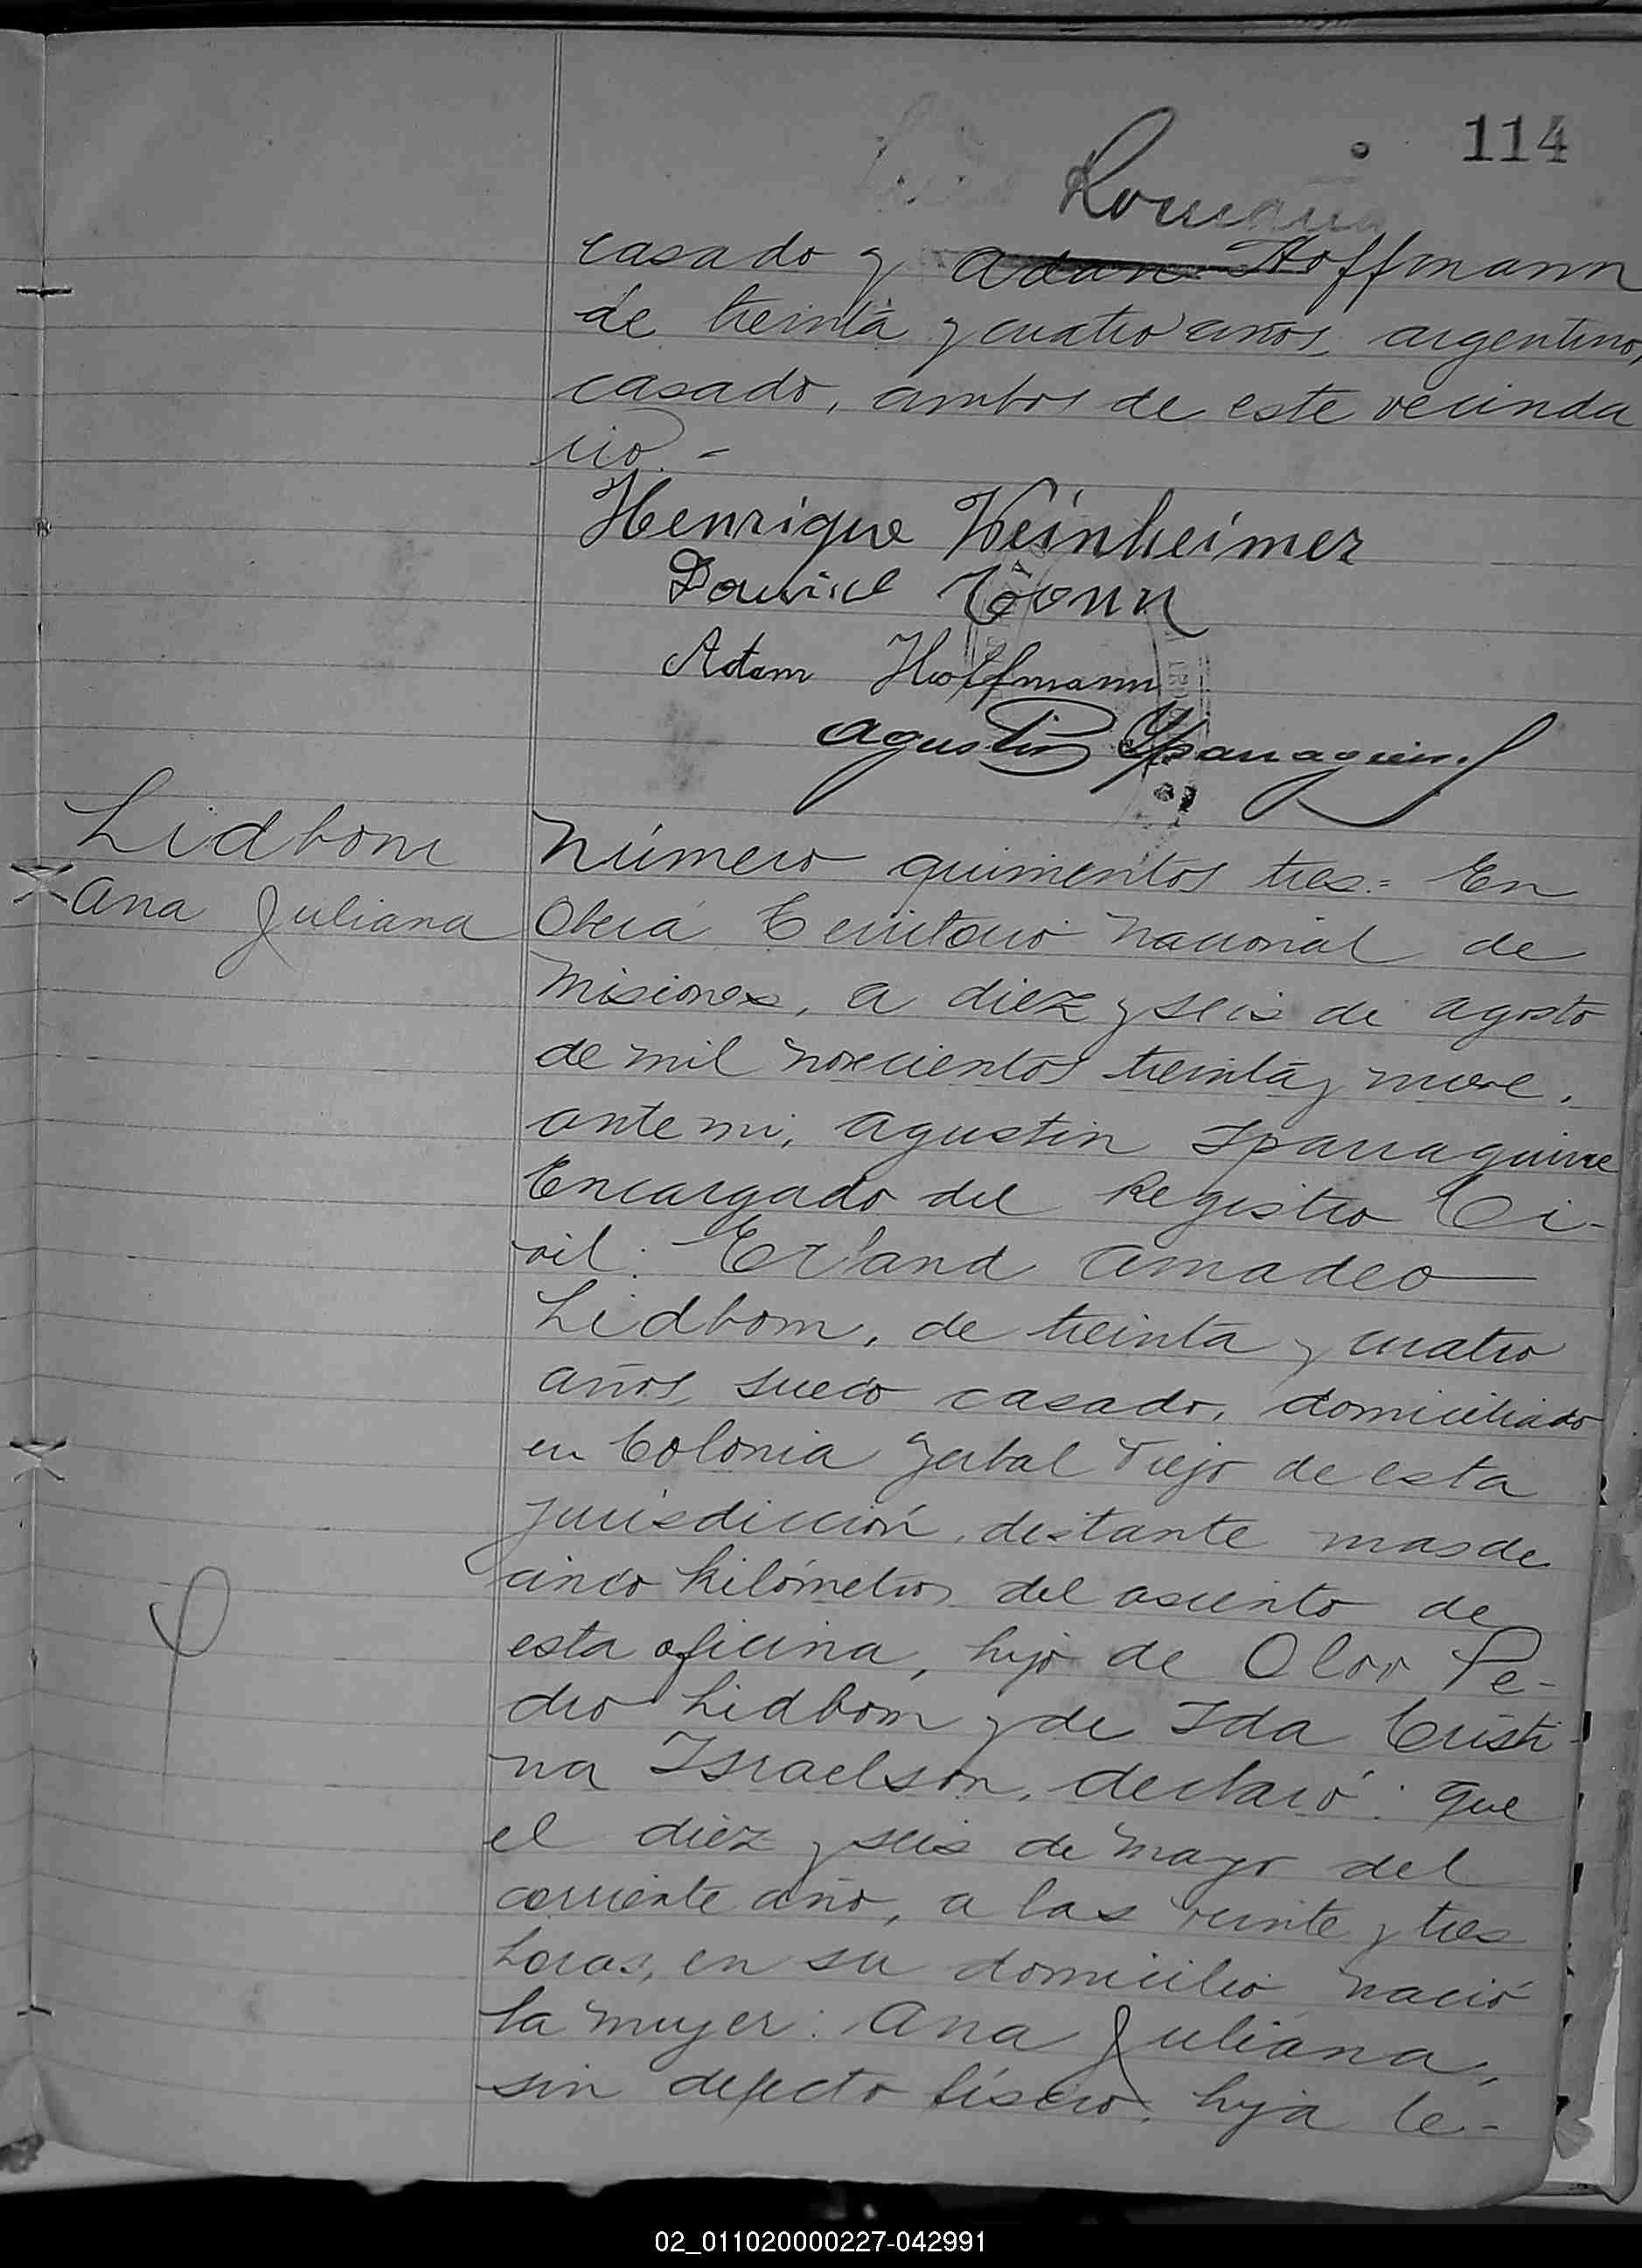 114
casado y Adan Hoffmann
de treinta y cuatro años, argentino,
casado, ambos de este vecinda
rio. -
Henrique Weinheimer
Adam Hoffmann
Agustin Yparraguirre
Lidbom
Ana Juliana
Número quinientos tres.= En
Oberá Territorio Nacional de
Misiones, a diez y seis de agosto
de mil novecientos treinta y nueve.
ante mi, Agustin Iparraguirre
Encargado del Registro Ci-
vil: Erland Amadeo
Lidbom, de treinta y cuatro
años, sueco casado, domiciliado
en Colonia Yerbal Viejo de esta
jurisdicción, distante mas de
cinco kilómetros del asiento de
esta oficina, hijo de Olov Pe-
dro Lidbom y de Ida Cristi-
na Israelson, declaró: que
el diez y seis de Mayo del
corriente año, a las veinte y tres
horas, en su domicilio nació
la mujer: Ana Juliana,
sin defecto físico, hija le-
02_011020000227-042991